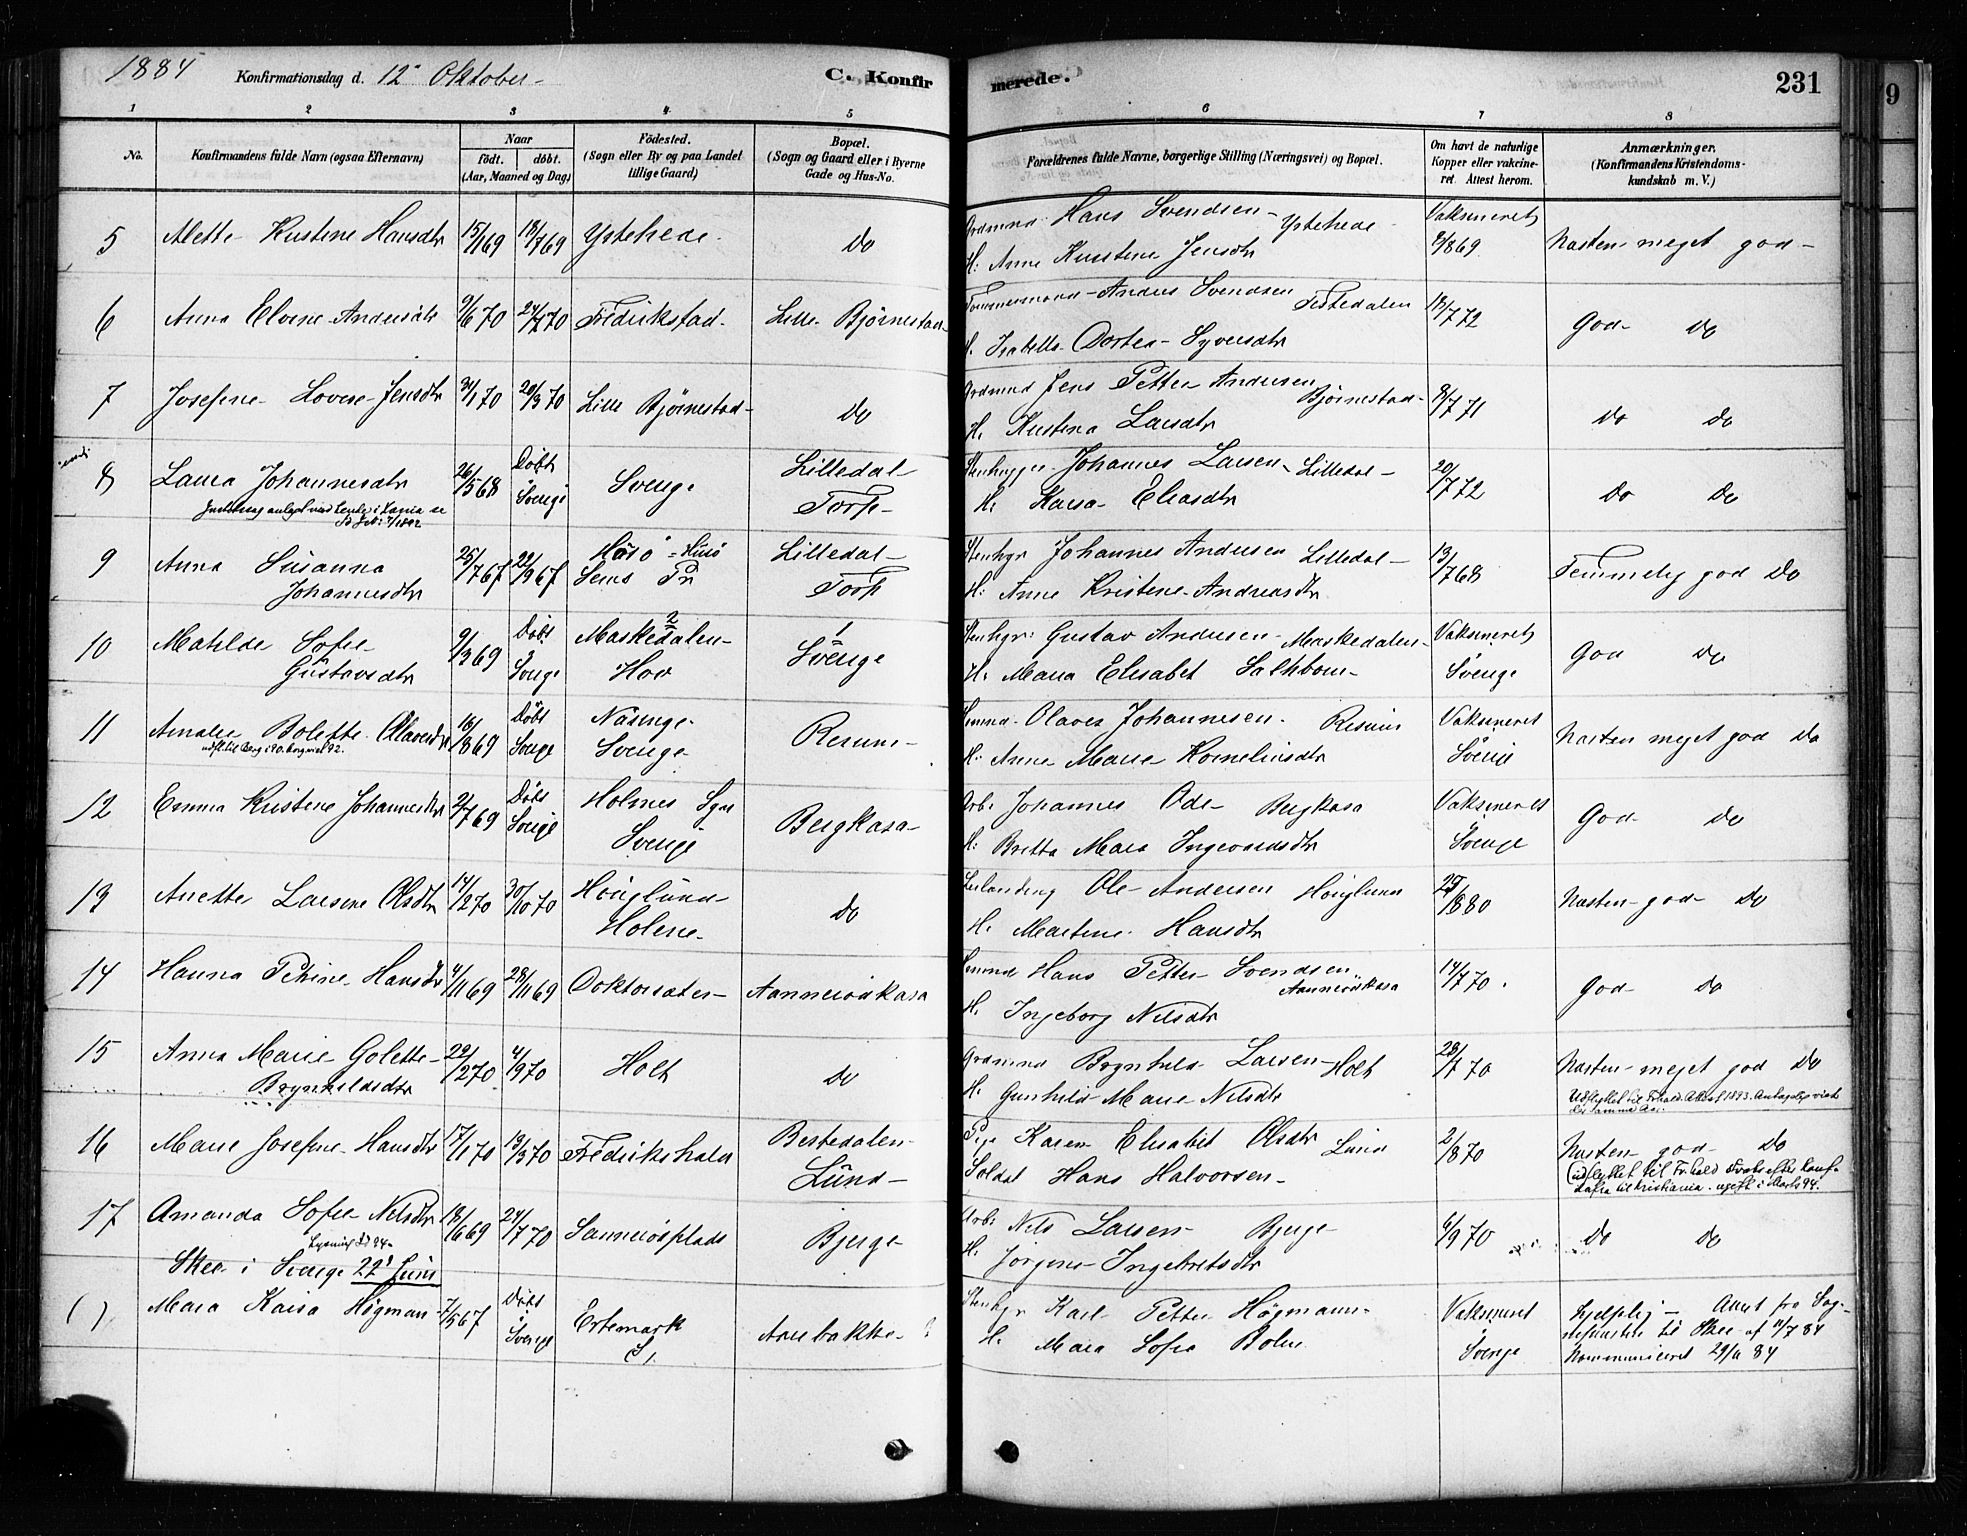 1884 Konfirmationsdag d. 12' Oktober - C. Konfir merede. 231
1 2 3 4 5 6 7 8
No. Konfirmandens fulde Navn (ogsaa Efternavn) Naar födt. döbt. (Aar, Maaned og Dag) Födested. (Sogn eller By og paa Landet tillige Gaard) Bopæl. (Sogn og Gaard eller i Byerne Gade og Hus-No. Forældrenes fulde Navne, borgerlige Stilling (Næringsvei) og Bopæl. Om havt de naturlige Kopper eller vakcineret. Attest herom. Anmærkninger. (Konfirmandens Kristendomskundskab m. V.)
5 Alette Kristine Hansdtr 15/1 69 18/7 69 Ystehede Do Hans Svendsen - Ystehede Vaksineret 9/8 69 Næsten meget god -
H. Anne Kristine Jensdtr
6 Anna Elvine Andersdtr 9/6 70 24/7 70 Fredrikstad Lille Bjørnestad Tømmermand - Anders Svendsen Tistedalen 12/7 72 God Do
H. Isabella Dortea Syversdtr
7 Josefine Lovise Jensdtr 31/1 70 20/3 70 Lille Bjørnestad - Do Jens Petter Andersen Bjørnestad - 8/7 71 Do Do
H. Kristina Larsdtr
8 Laura Johannesdtr 26/5 68 Döbt Sverige Sverige Lilledal - Torp - Stenhugger Johannes Larsen Lilledal - 20/7 72 Do Do
H. Kaisa Eliasdtr
9 Anna Susanna Johannesdtr 25/7 67 22/9 67 Håsö = Husö Sems Pr Lilledal - Torp Stenhgr Johannes Andersen Lilledal - 13/7 68 Temmelig god Do
H. Anne Kristine Andreasdtr
10 Matilde Sofie Gustavsdtr 9/3 69 Döbt Sverige 2 Maskedalen - Hov 1 Sverige Stenhgr. Gustav Andersen - Maskedalen - Vaksineret Sverige God Do
H. Maria Elisabet
11 Amalie Bolette Olavesdtr 16/8 69 Döbt Sverige Näsinge Sverige Risum - Olaves Johannesen Risum Vaksineret Sverige Næsten meget god Do
H. Anne Marie Kornelinsdtr
12 Emma Kristine Johannesdtr 2/7 69 Döbt Sverige Holmes Sgn Sverige Bergkasa - Arb. Johannes Ode Bergkasa Vaksineret Sverige God Do
H. Britta Maria Ingevardsdtr
13 Anette Larsine Olsdtr 14/2 70 30/10 70 Höiglund - Holene - Do Ole Andersen Höiglund 25/8 80 Næsten god - Do
H. Martine Hansdtr
14 Hanna Petrine Hansdtr 4/11 69 28/11 69 Doktorsæter - Aannerödkasa Hans Petter Svendsen Aannerödkasa 14/7 70 God Do
H. Ingeborg Nilsdtr
15 Anna Marie Golette - Brynhildsdtr 22/2 70 4/9 70 Holt Do Brynhild Larsen - Holt 28/7 70 Næsten meget god Do
H. Gunhild Marie Nilsdtr
16 Marie Josefine Hansdtr 17/1 70 13/3 70 Fredrikshald Bestedalen - Lund - Pige Karen Elisabet Olsdtr Lund 2/8 70 Næsten god - Do
Soldat Hans Halvorsen -
17 Amanda Sofie Nilsdtr 18/6 69 24/7 70 Sannerödplads Bjerge Arb. Nils Larsen Bjerge 6/9 70 Do Do
H. Jørgine Ingebretsdtr
Skee i Sverige 22d Juni
( ) Maria Kaisa Högman 7/5 67 Döbt Sverige Ertemark S. Anebakke Stenhgr Karl Petter Högmann Vaksineret Sverige Hjelplig - Attest fra til Skee af 11/7 84
H. Maria Sofia Bolin Kommuniceret 29/6 84